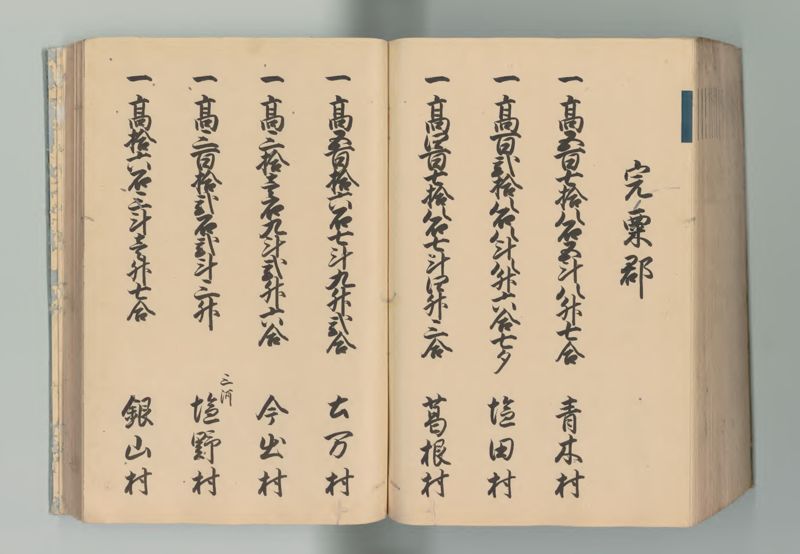 完粟郡
一 高五百七拾八石五斗八升七合 青木村
一 高百弐拾八石八斗八升六合七夕 塩田村
一 高四百七拾八石七斗四升三合 葛根村
一 高五百拾六石七斗九升弐合 土万村
一 高三拾壱石九斗弐升六合 今出村
一 高三百拾弐石弐斗三升 三河 塩野村
一 高拾六石三斗壱升七合 銀山村